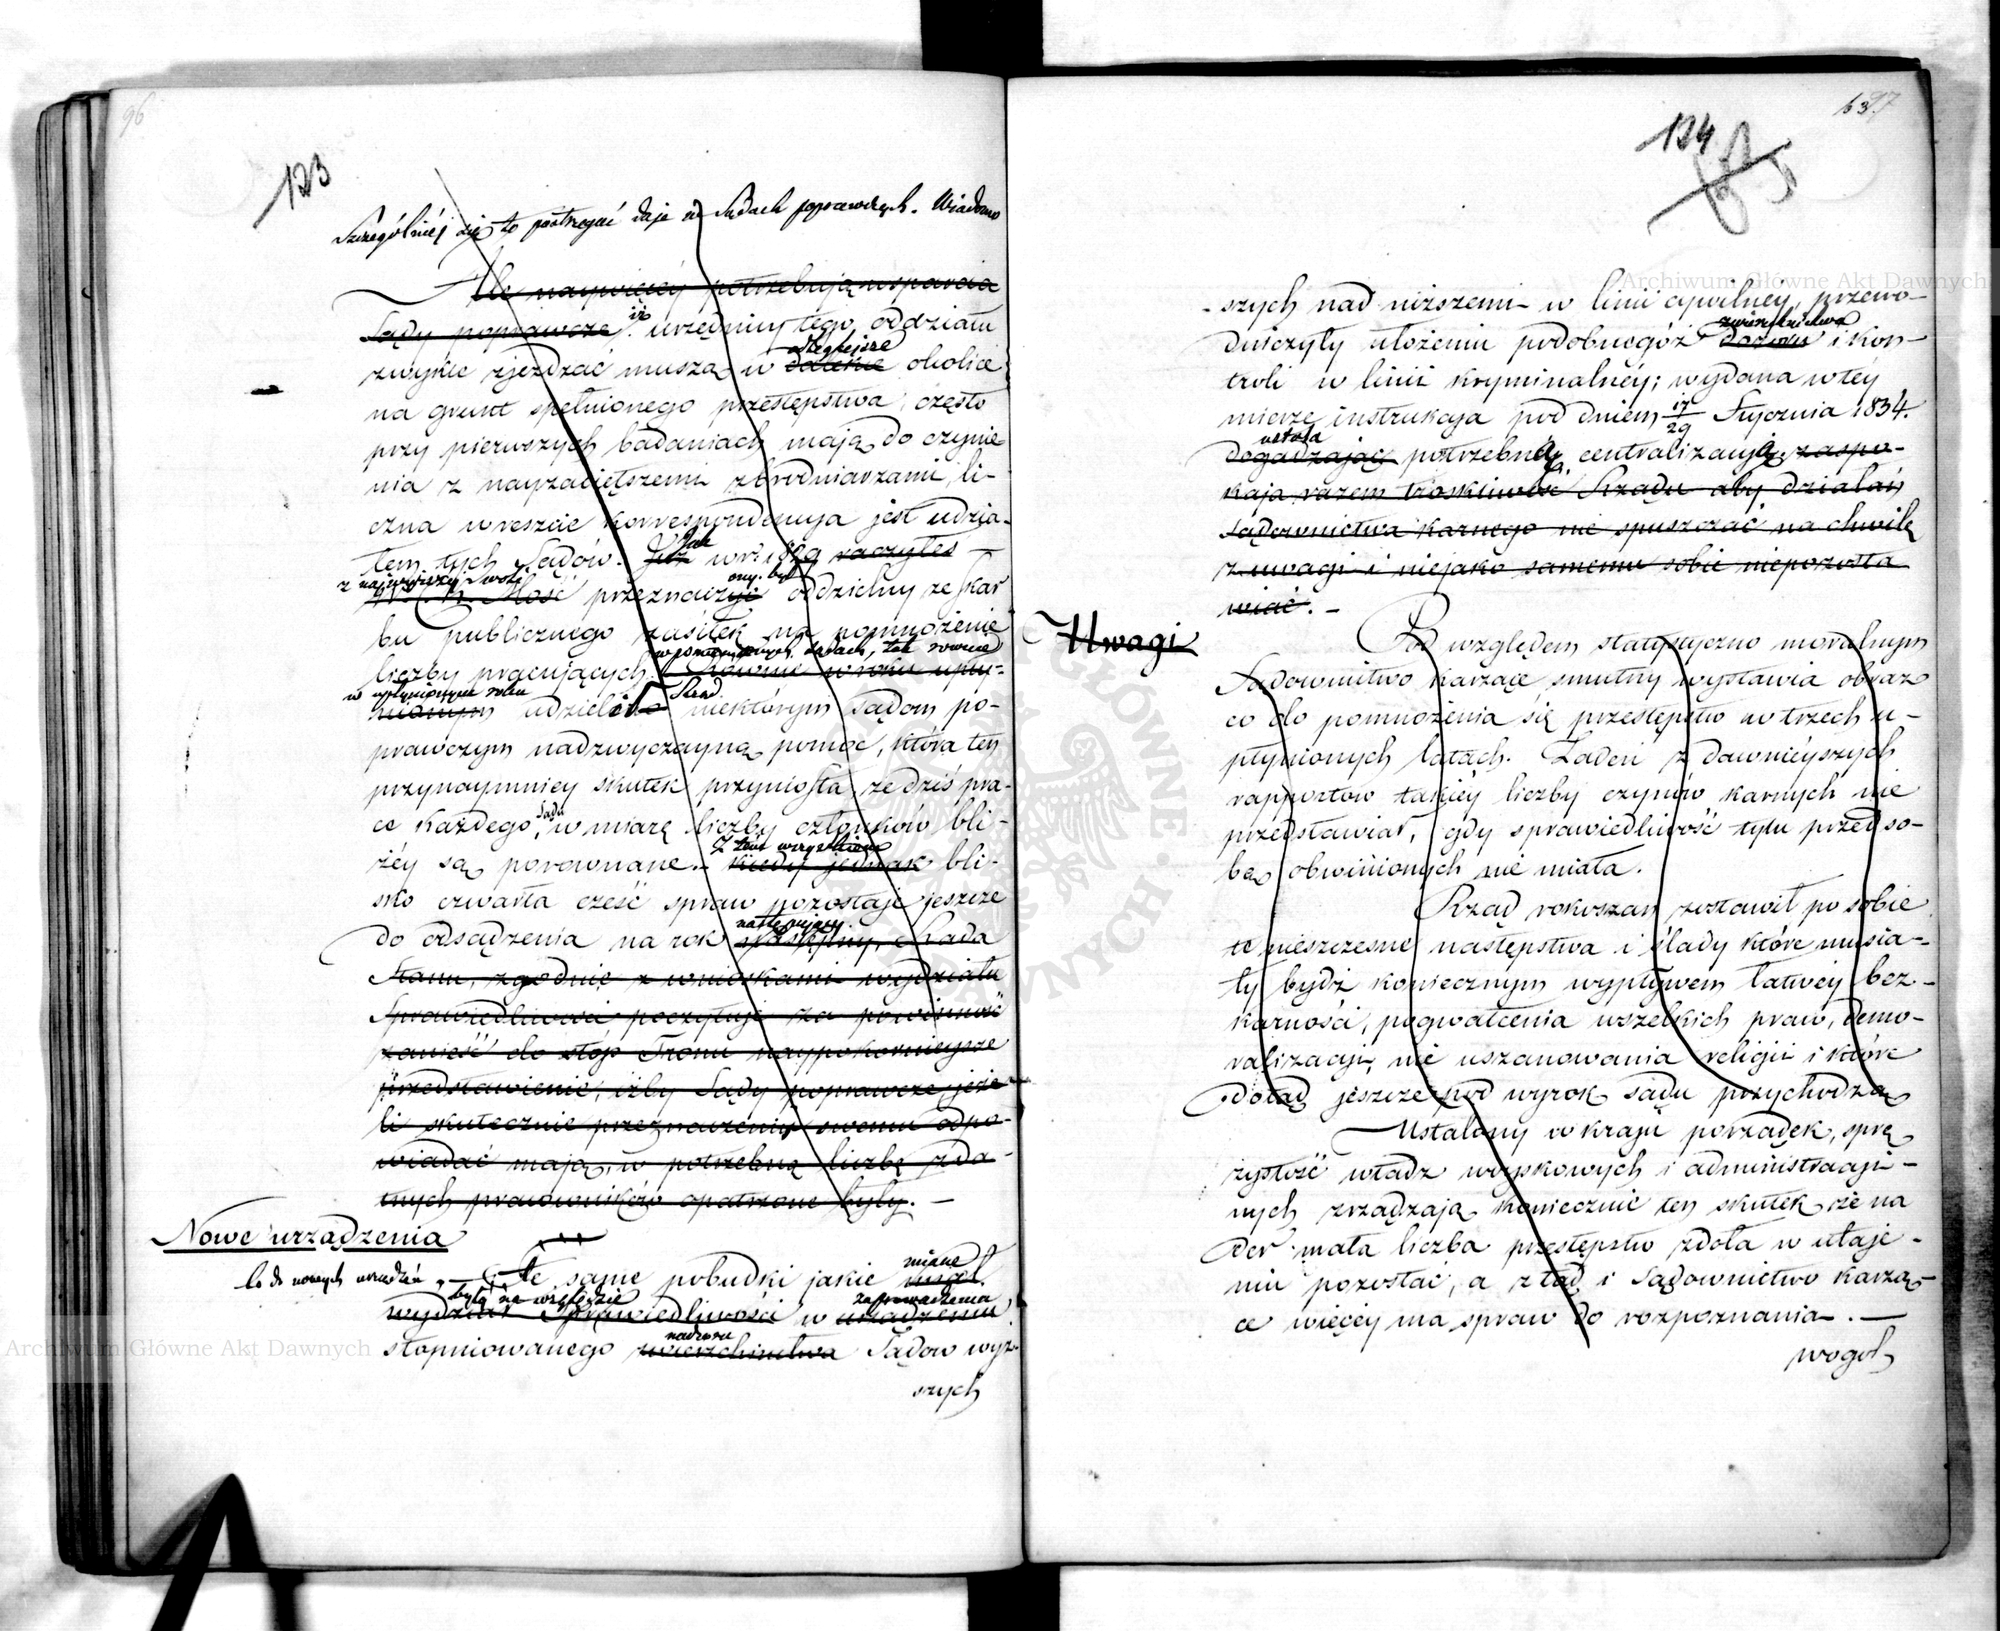 96
123
Szczególniéj się to postrzegać daje w Sądach poprawczych. Wiadomo
Ale naywięcéy potrzebują wsparcia
Sądy poprawcze iż urzędnicy tego oddziału
odlegleysze
zwykle zjeżdżać muszą w dalekie okolice
na grunt spełnionego przestępstwa, często
przy pierwszych badaniach mają do czynie
nia z nayzaciętszemi zbrodniarzami, li-
czna wreszcie korrespondencya jest udzia-
łem tych Sądów. Już Jak w r: 1829 raczyłeś
z najwyższéj woli
Mość przeznaczyć oddzielny ze Skar
bu publicznego zasiłek na pomnożenie
wspomnionych Sądach, tak równie
liczby pracujących. Równie w roku upły-
w upłynionym roku Rząd
nionym udzielił niektórym Sądom po-
prawczym nadzwyczayną pomoc, która ten
przynaymniey skutek przyniosła, że dziś pra-
ce każdego Sądu, w miarę liczby członków bli-
żéy są porównane. - Z tem wszystkiem Kiedy jednak bli-
sko czwarta cześć spraw pozostaje jeszcze
następujący
do osądzenia na rok następny, Rada
Stanu, zgodnie z wnioskami wydziału
Sprawiedliwości poczytuje za powinność
zanieść do stóp Tronu naypokornieysze
przedstawienie, iżby Sądy poprawcze, jeże
li skutecznie przeznaczeniu swemu odpo-
wiadać mają, w potrzebną liczbę zda-
tnych pracowników opatrzone były. -
Nowe urządzenia
Co do nowych urządzeń, - Te same pobudki jakie miane
były na względzie zaprowadzenia
wydział Sprawiedliwości w urządzeniu
nadzoru
stopniowanego zwierzchnictwa Sądow wyż-
szych
63 97
124
szych nad niższemi w linii cywilney, przewo-
zwierzchnictwa
dniczyły ułożeniu podobnegóż dozoru i kon-
troli w linii kryminalnéy; wydana w téy
mierze instrukcya pod dniem 17/29 Stycznia 1834.
ustala
dogadzając potrzebną centralizacyą, zaspo-
kaja razem troskliwość Rządu aby działań
Sądownictwa karnego nie spuszczać na chwilę
z uwagi i niejako samemu sobie niepozosta
wiać. -
Uwagi
Pod względem statystyczno moralnym
Sądownictwo karzące smutny wystawia obraz
co do pomnożenia się przestępstw w trzech u-
płynionych latach. Żaden z dawnieyszych
rapportow takiéy liczby czynów karnych nie
przedstawiał, gdy sprawiedliwość tylu przed so-
bą obwinionych nie miała.
Rząd rokoszan zostawił po sobie
te nieszczesne następstwa i ślady które musia-
ły bydź koniecznym wypływem łatwéy bez-
karności, pogwałcenia wszelkich praw, demo-
ralizacyi, nie uszanowania religii i które
dotąd jeszcze pod wyrok sądu przychodzą.
Ustalony w kraju porządek, sprę
żystość władz woyskowych i administracyi-
nych zrządzają koniecznie ten skutek, że na
der mała liczba przestępstw zdoła w utaje-
niu pozostać, a z tąd i Sądownictwo karzą-
ce więcéy ma spraw do rozpoznania. -
wogol
Archiwum Główne Akt Dawnych
Archiwum Główne Akt Dawnych